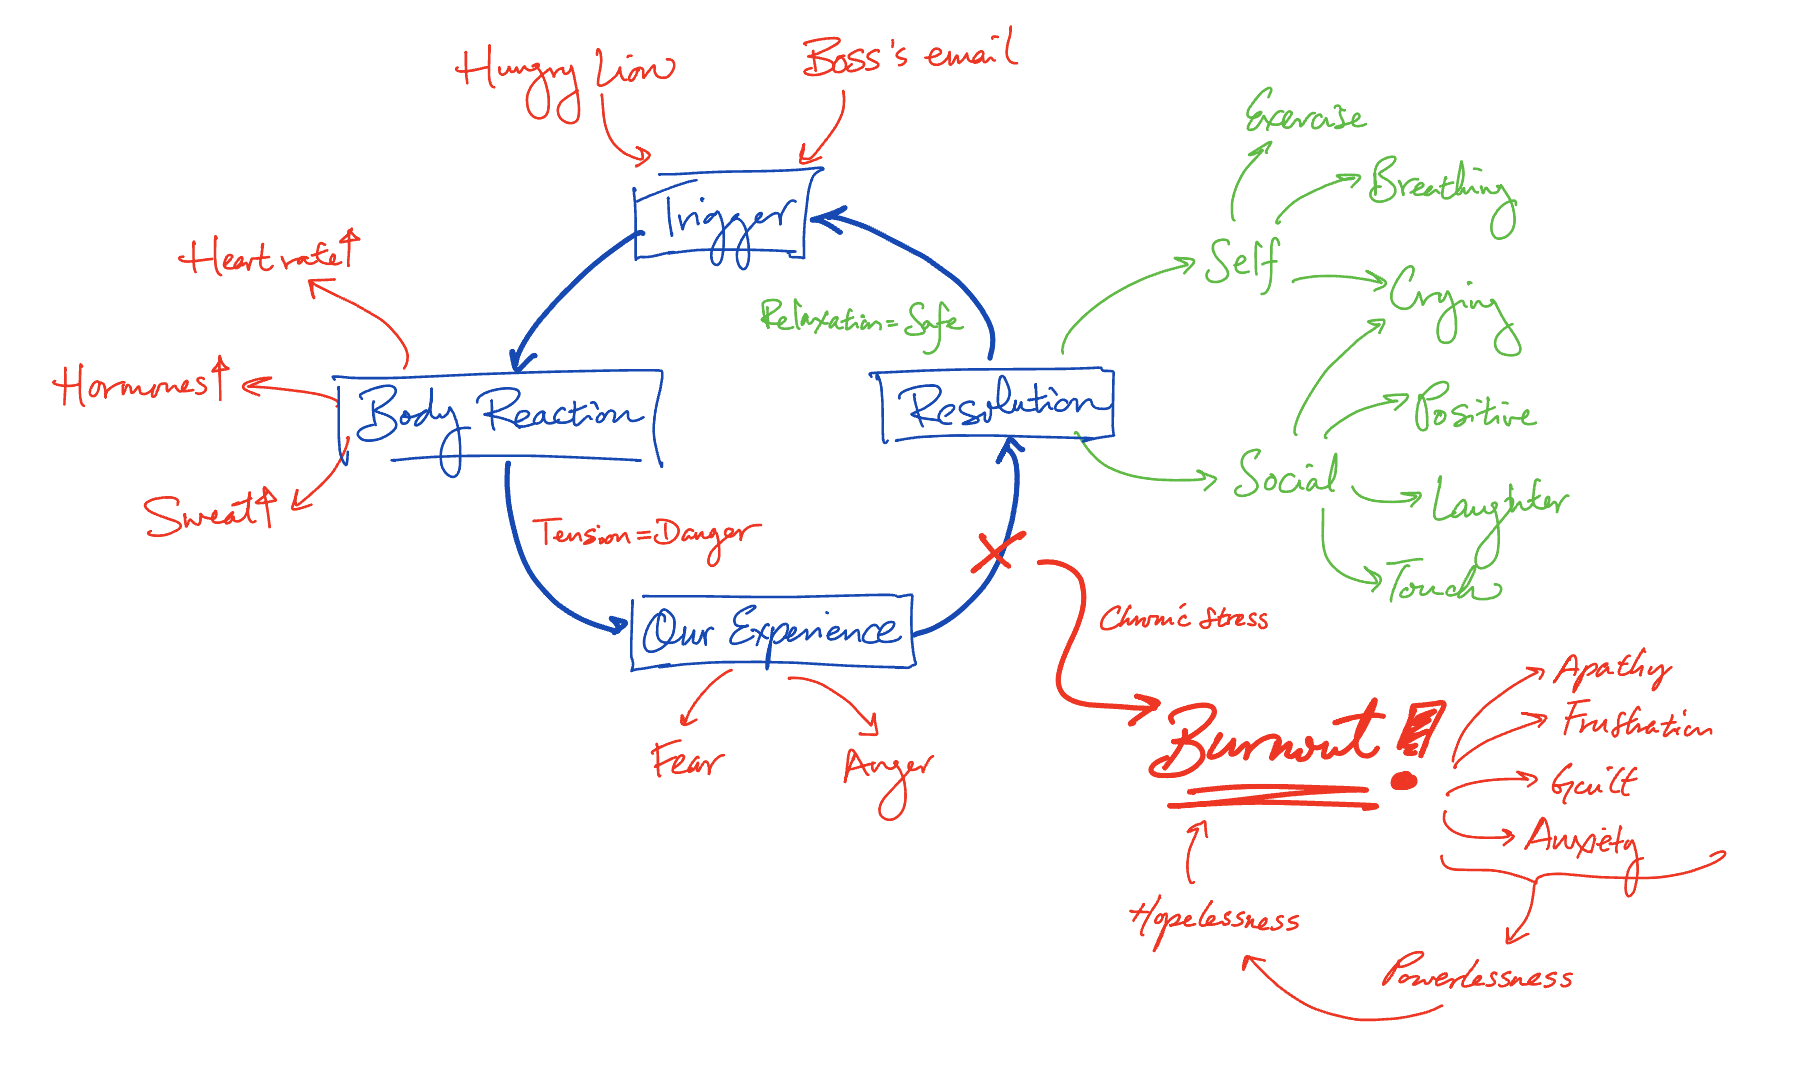 Hungry Lion
Boss's email
Trigger
Heart rate↑
Hormones↑
Sweat↑
Body Reaction
Tension=Danger
Our Experience
Fear
Anger
Resolution
Relaxation=Safe
Self
Exercise
Breathing
Crying
Social
Positive
Laughter
Touch
Chronic Stress
Burnout!
Apathy
Frustration
Guilt
Anxiety
Powerlessness
Hopelessness